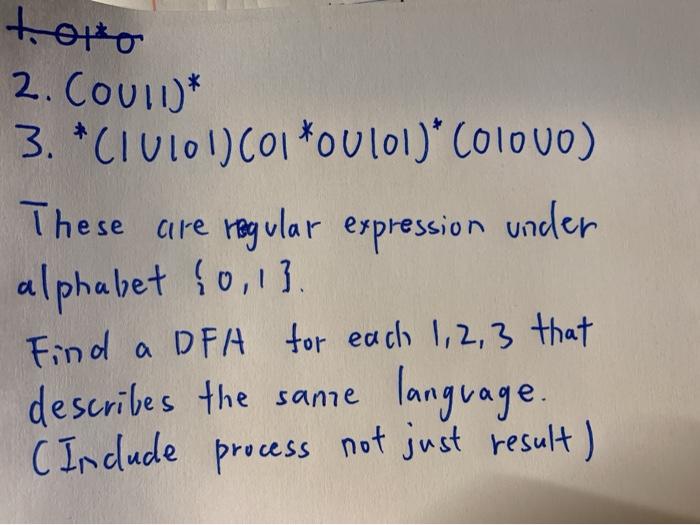 1. 01*0
2. (0∪11)*
3. *(1∪101)(01*0∪101)*(010∪0)
These are regular expression under
alphabet {0,1}.
Find a DFA for each 1,2,3 that
describes the same language.
(Include process not just result)